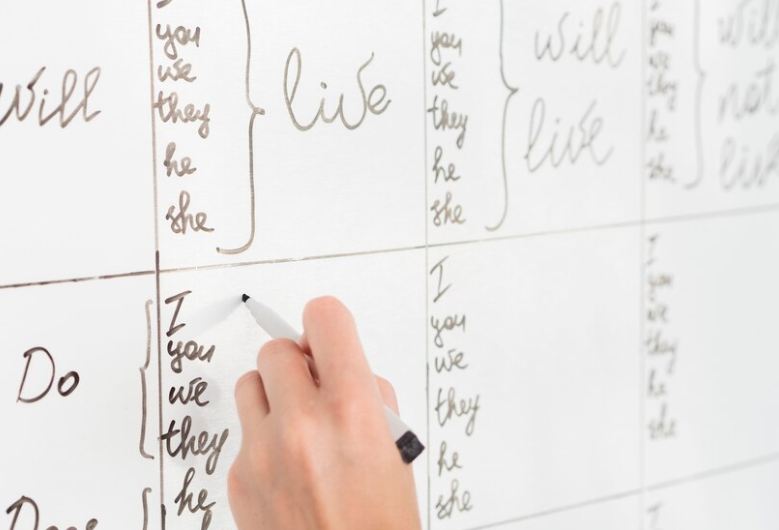 Will
I
you
we
they
he
she
live
I
you
we
they
he
she
will
live
I
you
we
they
he
she
will
not
live
Do
I
you
we
they
he
I
you
we
they
he
she
I
you
we
they
he
she
I